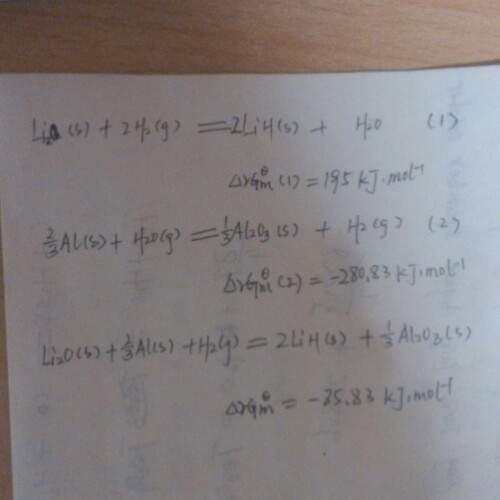 Li₂O(s) + 2H₂(g) = 2LiH(s) + H₂O (1)
ΔrGmθ(1) = 195 kJ·mol⁻¹
2/3Al(s) + H₂O(g) = 1/3Al₂O₃(s) + H₂(g) (2)
ΔrGmθ(2) = -280.83 kJ·mol⁻¹
Li₂O(s) + 2/3Al(s) + H₂(g) = 2LiH(s) + 1/3Al₂O₃(s)
ΔrGmθ = -85.83 kJ·mol⁻¹